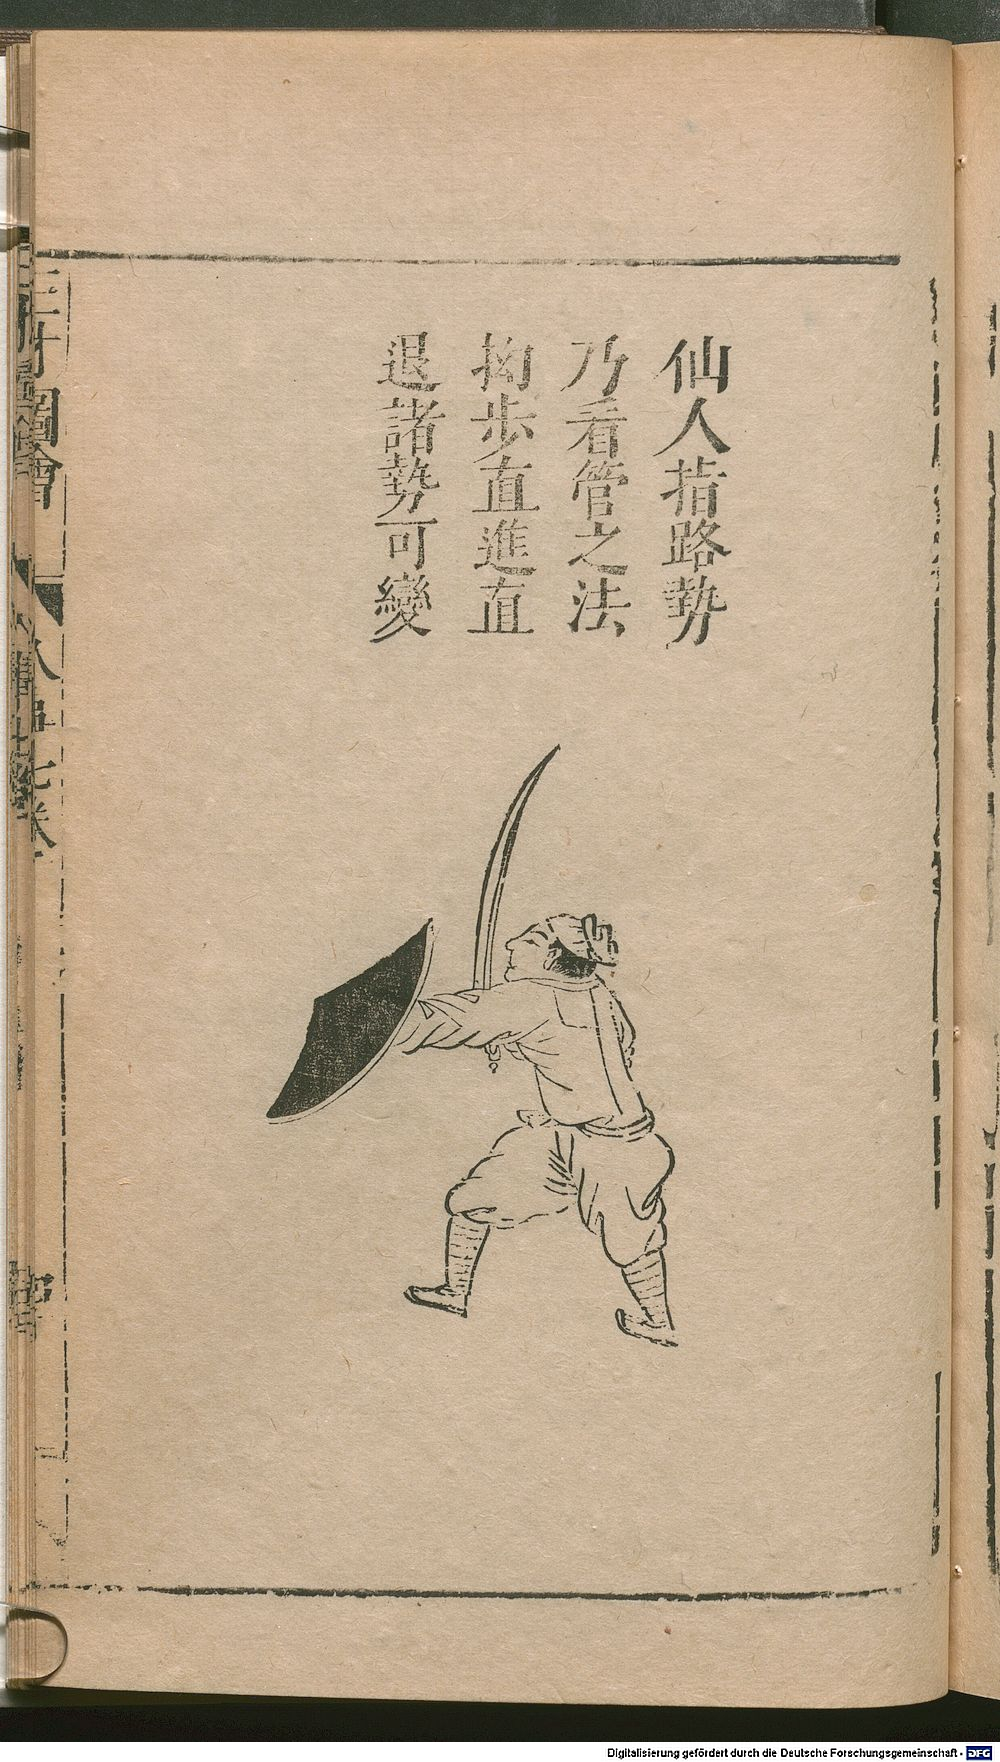 仙人指路勢
乃看管之法
拗步直進直
退諸勢可變
三才圖會
人事七卷
Digitalisierung gefördert durch die Deutsche Forschungsgemeinschaft - DFG